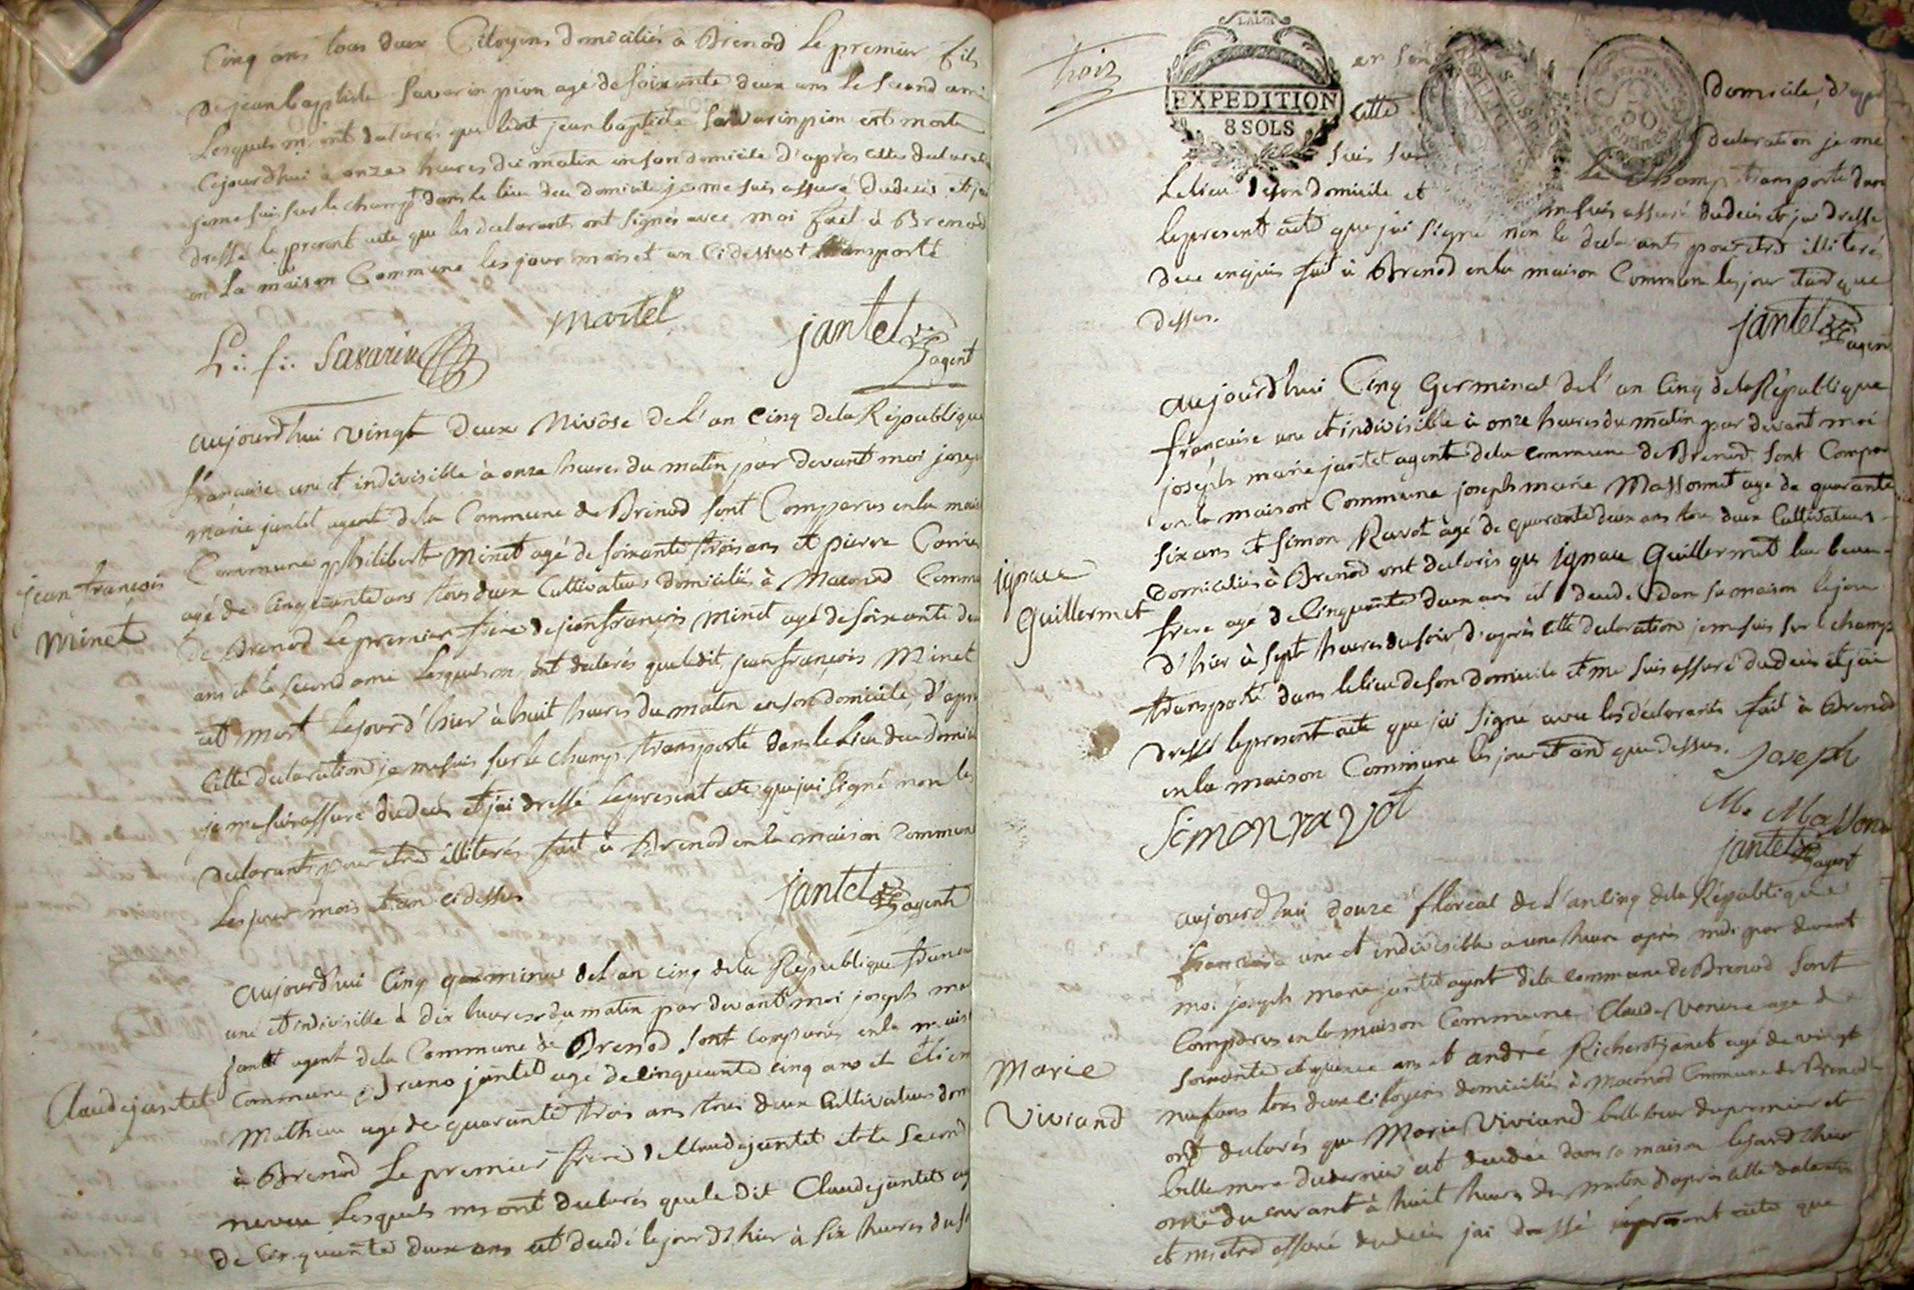 Cinq ans tous deux Citoyens domiciliés à Brenod le premier fils
de jean baptiste Savarin pion agé de soixante deux ans le second ami
Lesquels m'ont declarés que ledit jean baptiste Savarin pion est morte
cejourdhui à onze heures du matin en son domicile d'après cette declarat
je me suis sur le champ dans le lieu deu domicile je me suis assuré dudecis et jai
dressé le present acte que les declarants ont signés avec moi fait à Brenod
en la maison Commune les jour mois et an cidessus + transporté
martel
jantet agent
L: f: Savarin
aujourdhui vingt deux Nivôse de L'an cinq dela République
française une et indivisible à onze heures du matin par devant moi joseph
marie jantet agent dela Commune de Brenod sont Comparus en la mais
Commune philibert Minet agé de soixante trois ans et pierre
jean françois
Minet
agé de cinquante ans tous deux Cultivateurs domiciliés à Maconod Commu
de Brenod le premier frere de jean françois Minet agé de soixante deu
ans et le second ami Lesquels m'ont declarés queledit jean françois Minet
est mort lejourd'hier à huit heures du matin en son domicile, d'apres
cette declaration je me suis sur le champ transporté dans le Lieu deu domici
je me suis assuré dudecis et jai dressé lepresent acte que jai signé non les
declarants pour etre illiterés fait à Brenod en la maison commune
les jour mois et an cidessus
jantet agent
aujourdhui Cinq germina del'an cinq dela République franca
une et indivisible à dix heures du matin par devant moi joseph mar
jantet agent dela Commune de Brenod sont comparus en la mais
Claude jantet
Commune Bruno jantet agé de cinquante cinq ans et Etien
Mathieu agé de quarante trois ans tous deux Cultivateurs dom
à Brenod le premier frere de Claude jantet et le second
neveu Lesquels mont declarés que le dit Claude jantet ag
de cinquante deux ans est decedé lejour d'hier à six heures du s
trois
LA LOI
EXPEDITION
8 SOLS
en son
domicile, d'apr
cette
declaration je me
suis sur
le champ transporté dans
Lelieu de son domicile et
me suis assuré dudecis et jai dressé
lepresent acte que jai signé non le declarants pour etre illiterés
dece enquis fait à Brenod en la maison Commune les jour et and que
dessus.
jantet agent
aujourdhui Cinq Germinal del'an Cinq dela République
française une et indivisible à onze heures du matin par devant moi
joseph marie jantet agent dela commune de Brenod, sont Compar
en la maison Commune joseph marie Massonnet agé de quarante
six ans et Simon Ravot agé de quarante deux ans tous deux Cultivateurs
ignace
Guillermet
domiciliés à Brenod ont declarés que ignace Guillermet leur beau
frere agé de Cinquante deux ans est decedé dans sa maison lejour
d'hier à sept heures du soir, d'après cette declaration je me suis sur le champ
transporté dans lelieu de son domicile et me suis assuré dudecis et jai
dressé lepresent acte que jai signé avec les déclarants fait à Brenod
en la maison Commune les jour et and que dessus.
Simon ravot
joseph
Me Masson
jantet agent
aujourdhui douze floréal de L'an cinq dela République
française une et indivisible a une heure après midi par devant
moi joseph marie jantet agent dela commune de Brenod sont
Comparus en la maison Commune Claude Venere agé de
Marie
Viviand
soixante et quinze ans et andré Richerot janet agé de vingt
neuf ans tous deux citoyens domiciliés à Maconod Commune de Brenod
ont declarés que Marie Viviand belle seur du premier et
belle mere du dernier est decedée dans sa maison lejourd'hier
onze du courant à huit heures du matin d'après cette declaration
et m'etre assuré dudecis jai dressé lepresent acte que